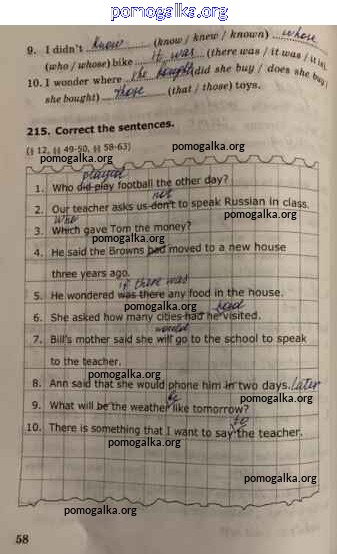 pomogalka.org
9. I didn't know (know / knew / known) whose
(who / whose) bike it was (there was / it was / it is).
10. I wonder where she bought (did she buy / does she buy /
she bought) those (that / those) toys.
pomogalka.org
215. Correct the sentences.
(§ 12, §§ 49-50, §§ 58-63) pomogalka.org
pomogalka.org
played
1. Who did play football the other day?
not
2. Our teacher asks us don't to speak Russian in class.
who
3. Which gave Tom the money?
pomogalka.org
4. He said the Browns had moved to a new house
pomogalka.org
three years ago.
if there was
5. He wondered was there any food in the house.
pomogalka.org
had
6. She asked how many cities had he visited.
would
7. Bill's mother said she will go to the school to speak
pomogalka.org
to the teacher.
pomogalka.org
8. Ann said that she would phone him in two days. later
be
9. What will be the weather like tomorrow?
pomogalka.org
to
10. There is something that I want to say the teacher.
pomogalka.org
pomogalka.org
pomogalka.org
58
pomogalka.org